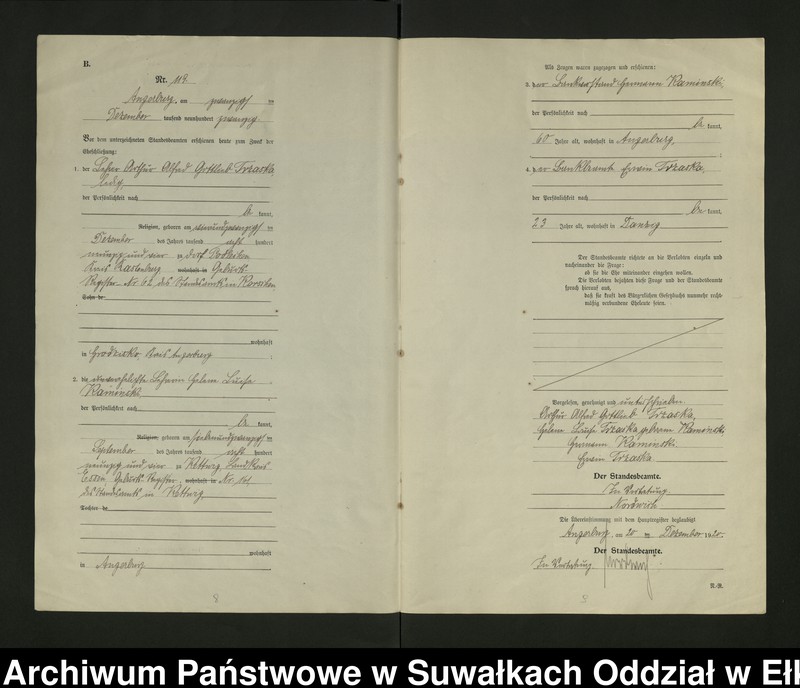 B.
Nr. 119.
Angerburg, am zwanzigsten
Dezember tausend neunhundert zwanzig
Vor dem unterzeichneten Standesbeamten erschienen heute zum Zweck der
Eheschließung:
1. der Lehrer Arthur Alfred Gottlieb Trzaska,
ledig,
der Persönlichkeit nach
be kannt,
Religion, geboren am vierundzwanzigsten
Dezember des Jahres tausend acht hundert
neunzig und vier zu Dorf
Kreis Rastenburg wohnhaft in Geburts
Register Nr. des Standesamts in Korschen
Sohn de
wohnhaft
in Grodzisko, Kreis Angerburg
2. die Helene Luise
Kaminski
der Persönlichkeit nach
be kannt,
Religion, geboren am siebenundzwanzigsten
September des Jahres tausend acht hundert
neunzig und vier zu Kettwig Landkreis
Essen, Geburts-Register, wohnhaft in Nr. 101
des Standesamts in Kettwig,
Tochter de
wohnhaft
in Angerburg
Als Zeugen waren zugezogen und erschienen:
3. der Hermann Kaminski,
der Persönlichkeit nach
be kannt,
60 Jahre alt, wohnhaft in Angerburg,
4. der Bankbeamte Erwin Trzaska,
der Persönlichkeit nach
be kannt,
23 Jahre alt, wohnhaft in Danzig
Der Standesbeamte richtete an die Verlobten einzeln und
nacheinander die Frage:
ob sie die Ehe miteinander eingehen wollen.
Die Verlobten bejahten diese Frage und der Standesbeamte
sprach hierauf aus,
daß sie kraft des Bürgerlichen Gesetzbuchs nunmehr recht-
mäßig verbundene Eheleute seien.
Vorgelesen, genehmigt und unterschrieben
Arthur Alfred Gottlieb Trzaska,
Helene Luise Trzaska geborene Kaminski,
Hermann Kaminski
Erwin Trzaska
Der Standesbeamte.
In Vertretung
Die Übereinstimmung mit dem Hauptregister beglaubigt
Angerburg, am 20 ten Dezember 1920.
Der Standesbeamte.
In Vertretung
8
8
Archiwum Państwowe w Suwałkach Oddział w Ełk